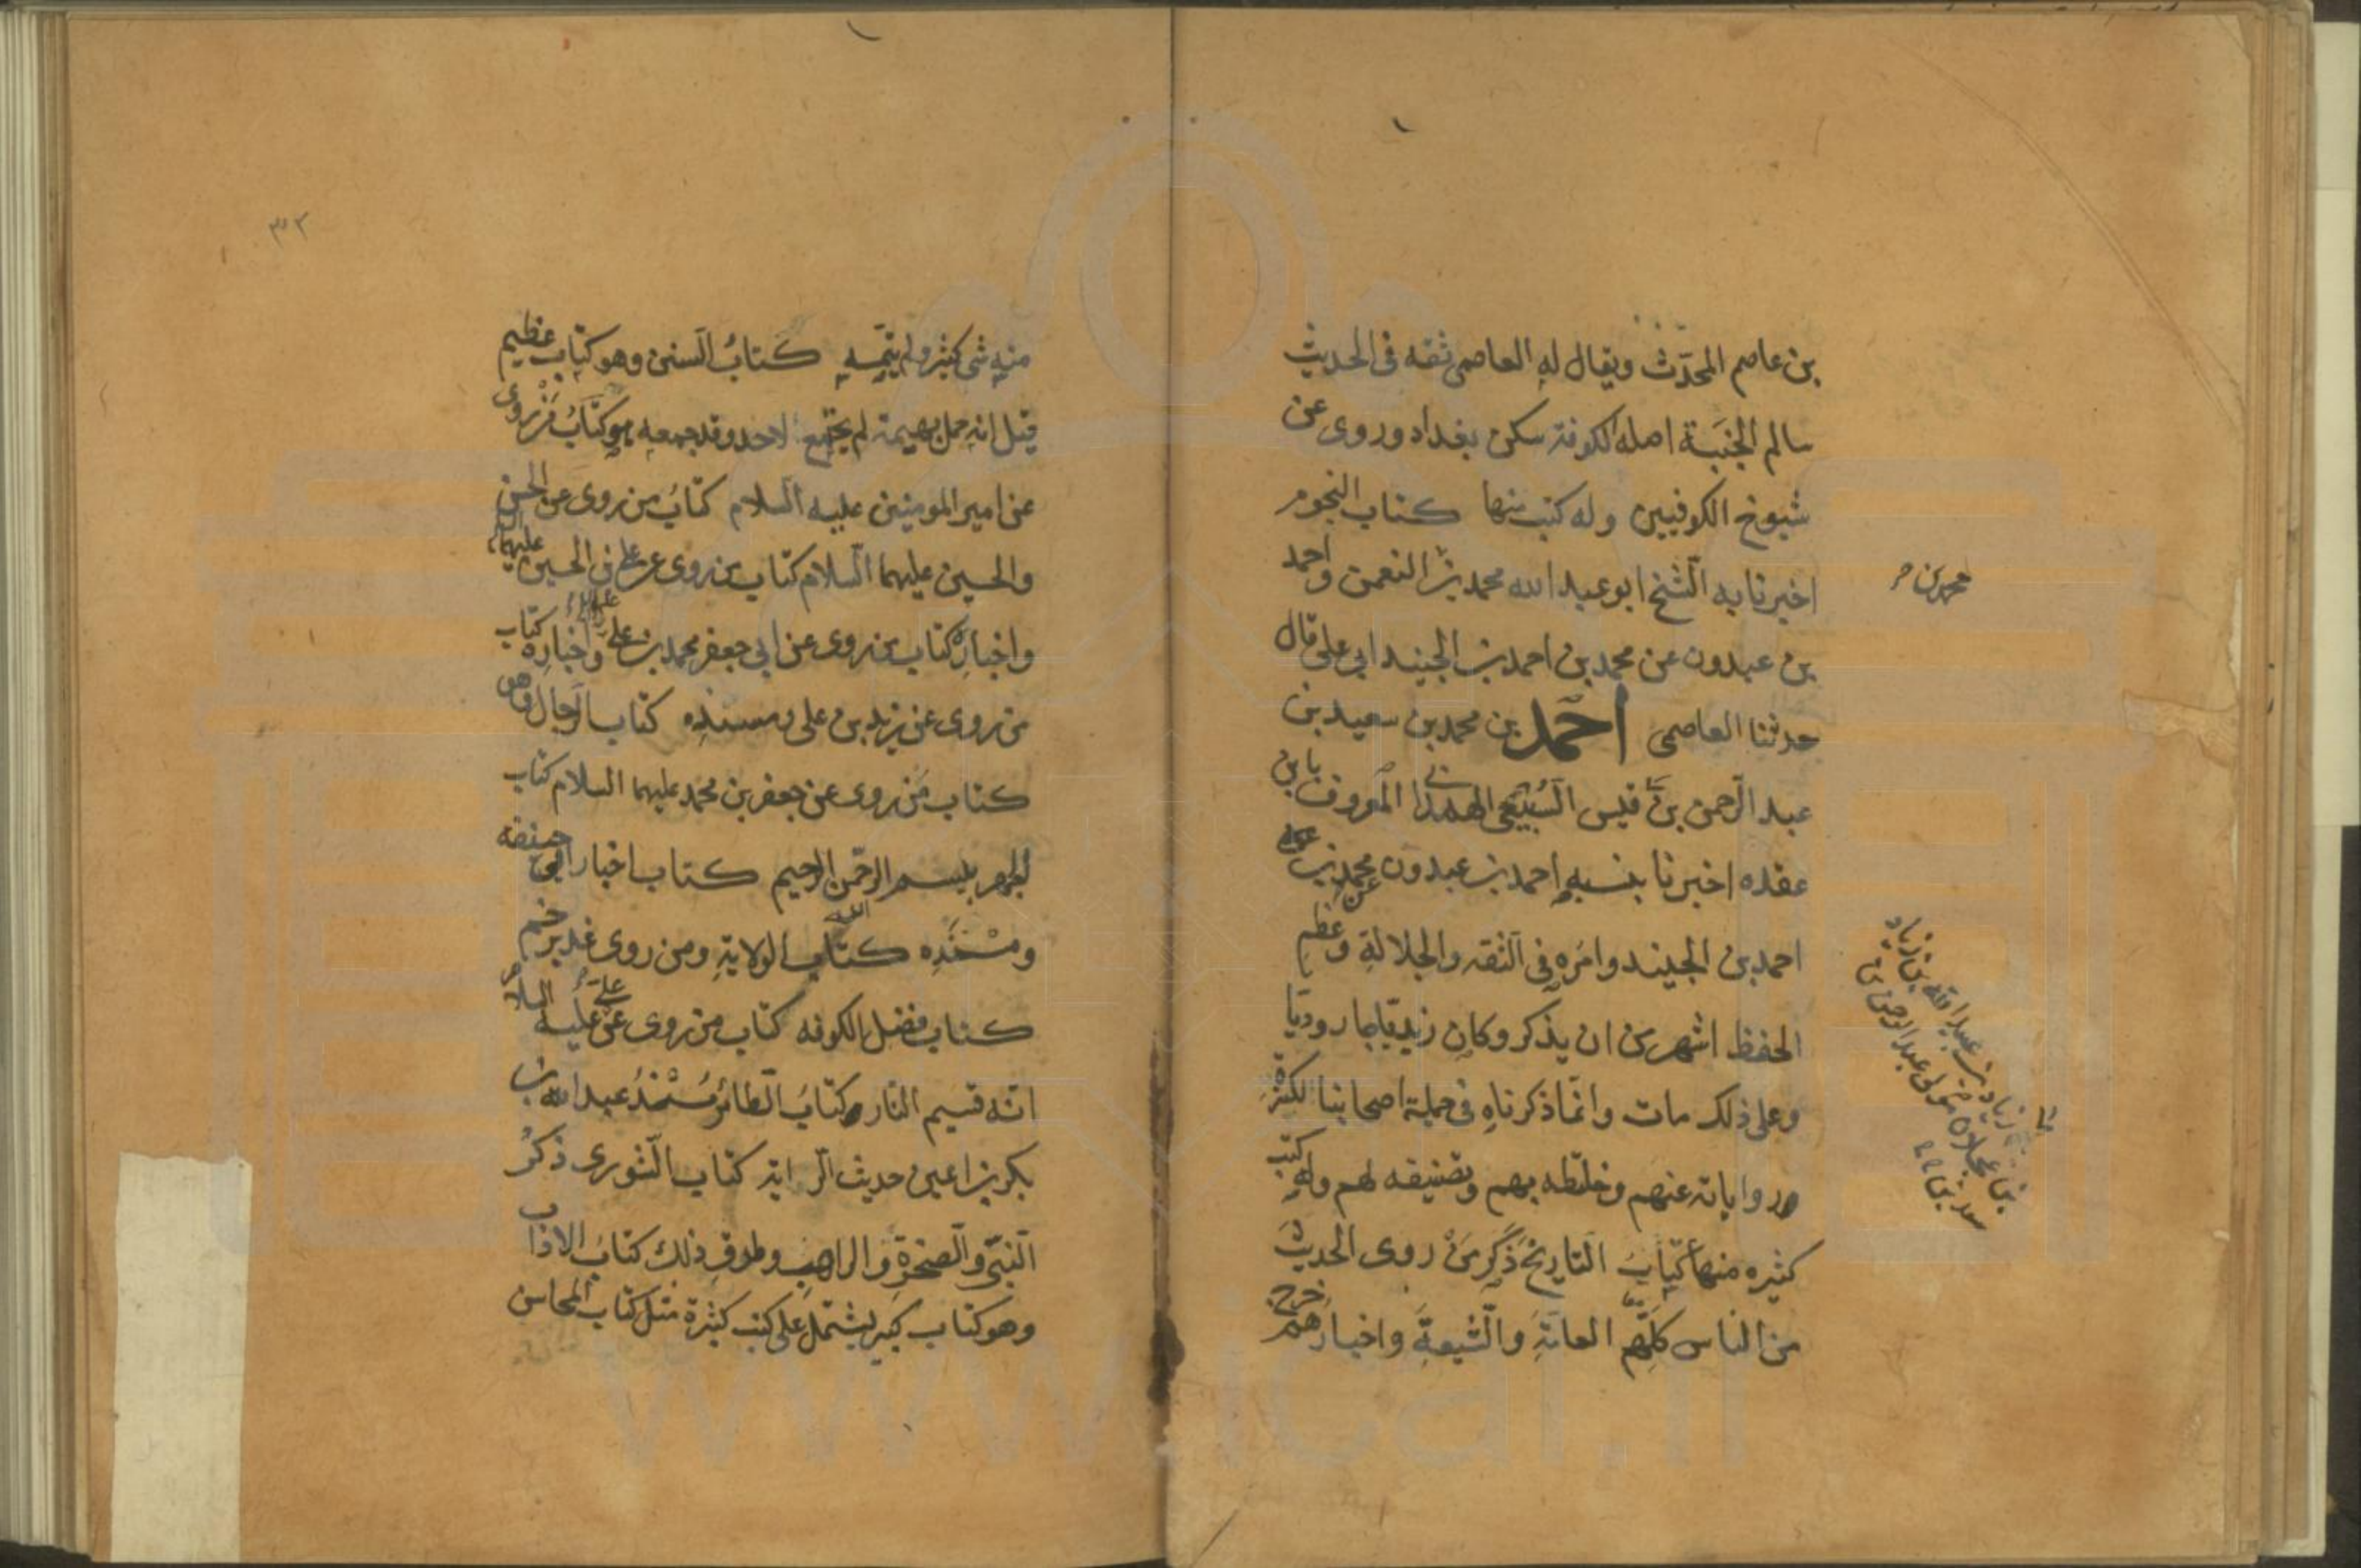 بن عاصم المحدّث ويقال له العاصمى ثقه فى الحديث
سالم الجنبة اصله الكوفة سكن بغداد وروى عن
شيوخ الكوفيين وله كتب منها كتاب النجوم
اخبرنا به الشيخ ابو عبد الله محمد بن النعمن واحمد
بن عبدون عن محمد بن احمد بن الجنيد ابى على قال
حدثنا العاصمى احمد بن محمد بن سعيد بن
عبد الرّحمن بن قيس السبيعى الهمدانى المعروف بابن
عقده اخبرنا بنسبه احمد بن عبدون عن محمد بن
احمد بن الجنيد وامره فى الثقه والجلالة وعظم
الحفظ اشهر من ان يذكر وكان زيديا جاروديا
وعلى ذلك مات وانّما ذكرناه فى جملة اصحابنا لكثرة
رواياته عنهم وخلطه بهم وتصنيفه لهم وله كتب
كثيره منها كتاب التاريخ ذكر من روى الحديث
من الناس كلّهم العامّة والشّيعة واخبارهم خرج
محمد بن
زياد بن عبد الله بن زياد
بن عجلان مولى عبد الرحمن بن
سعد بن
٣٢
منه شى كثير ولم يتمّه كتاب السنن وهو كتاب عظيم
قيل انه حمل بهيمة لم يجتمع لاحد وقد جمعه هو كتاب من روى
عن امير المومنين عليه السلام كتاب من روى عن الحسن
والحسين عليهما السّلام كتاب من روى عن على بن الحسين عليهما
واخباره كتاب من روى عن ابى جعفر محمد بن على واخباره كتاب
من روى عن زيد بن على ومسنده كتاب الرّجال وهو
كتاب من روى عن جعفر بن محمد عليهما السلام كتاب
الجهر ببسم الله الرّحمن الرّحيم كتاب اخبار ابى حنيفه
ومسنده كتاب الولاية ومن روى غدير خم
كتاب فضل الكوفه كتاب من روى عن على عليه السلام
انّه قسيم النار كتاب الطائر مسند عبد الله بن
بكير بن اعين حديث الراية كتاب الشورى ذكر
النبىّ والصخرة والراهب وطرق ذلك كتاب الاداب
وهو كتاب كبير يشتمل على كتب كثيرة مثل كتاب المحاسن